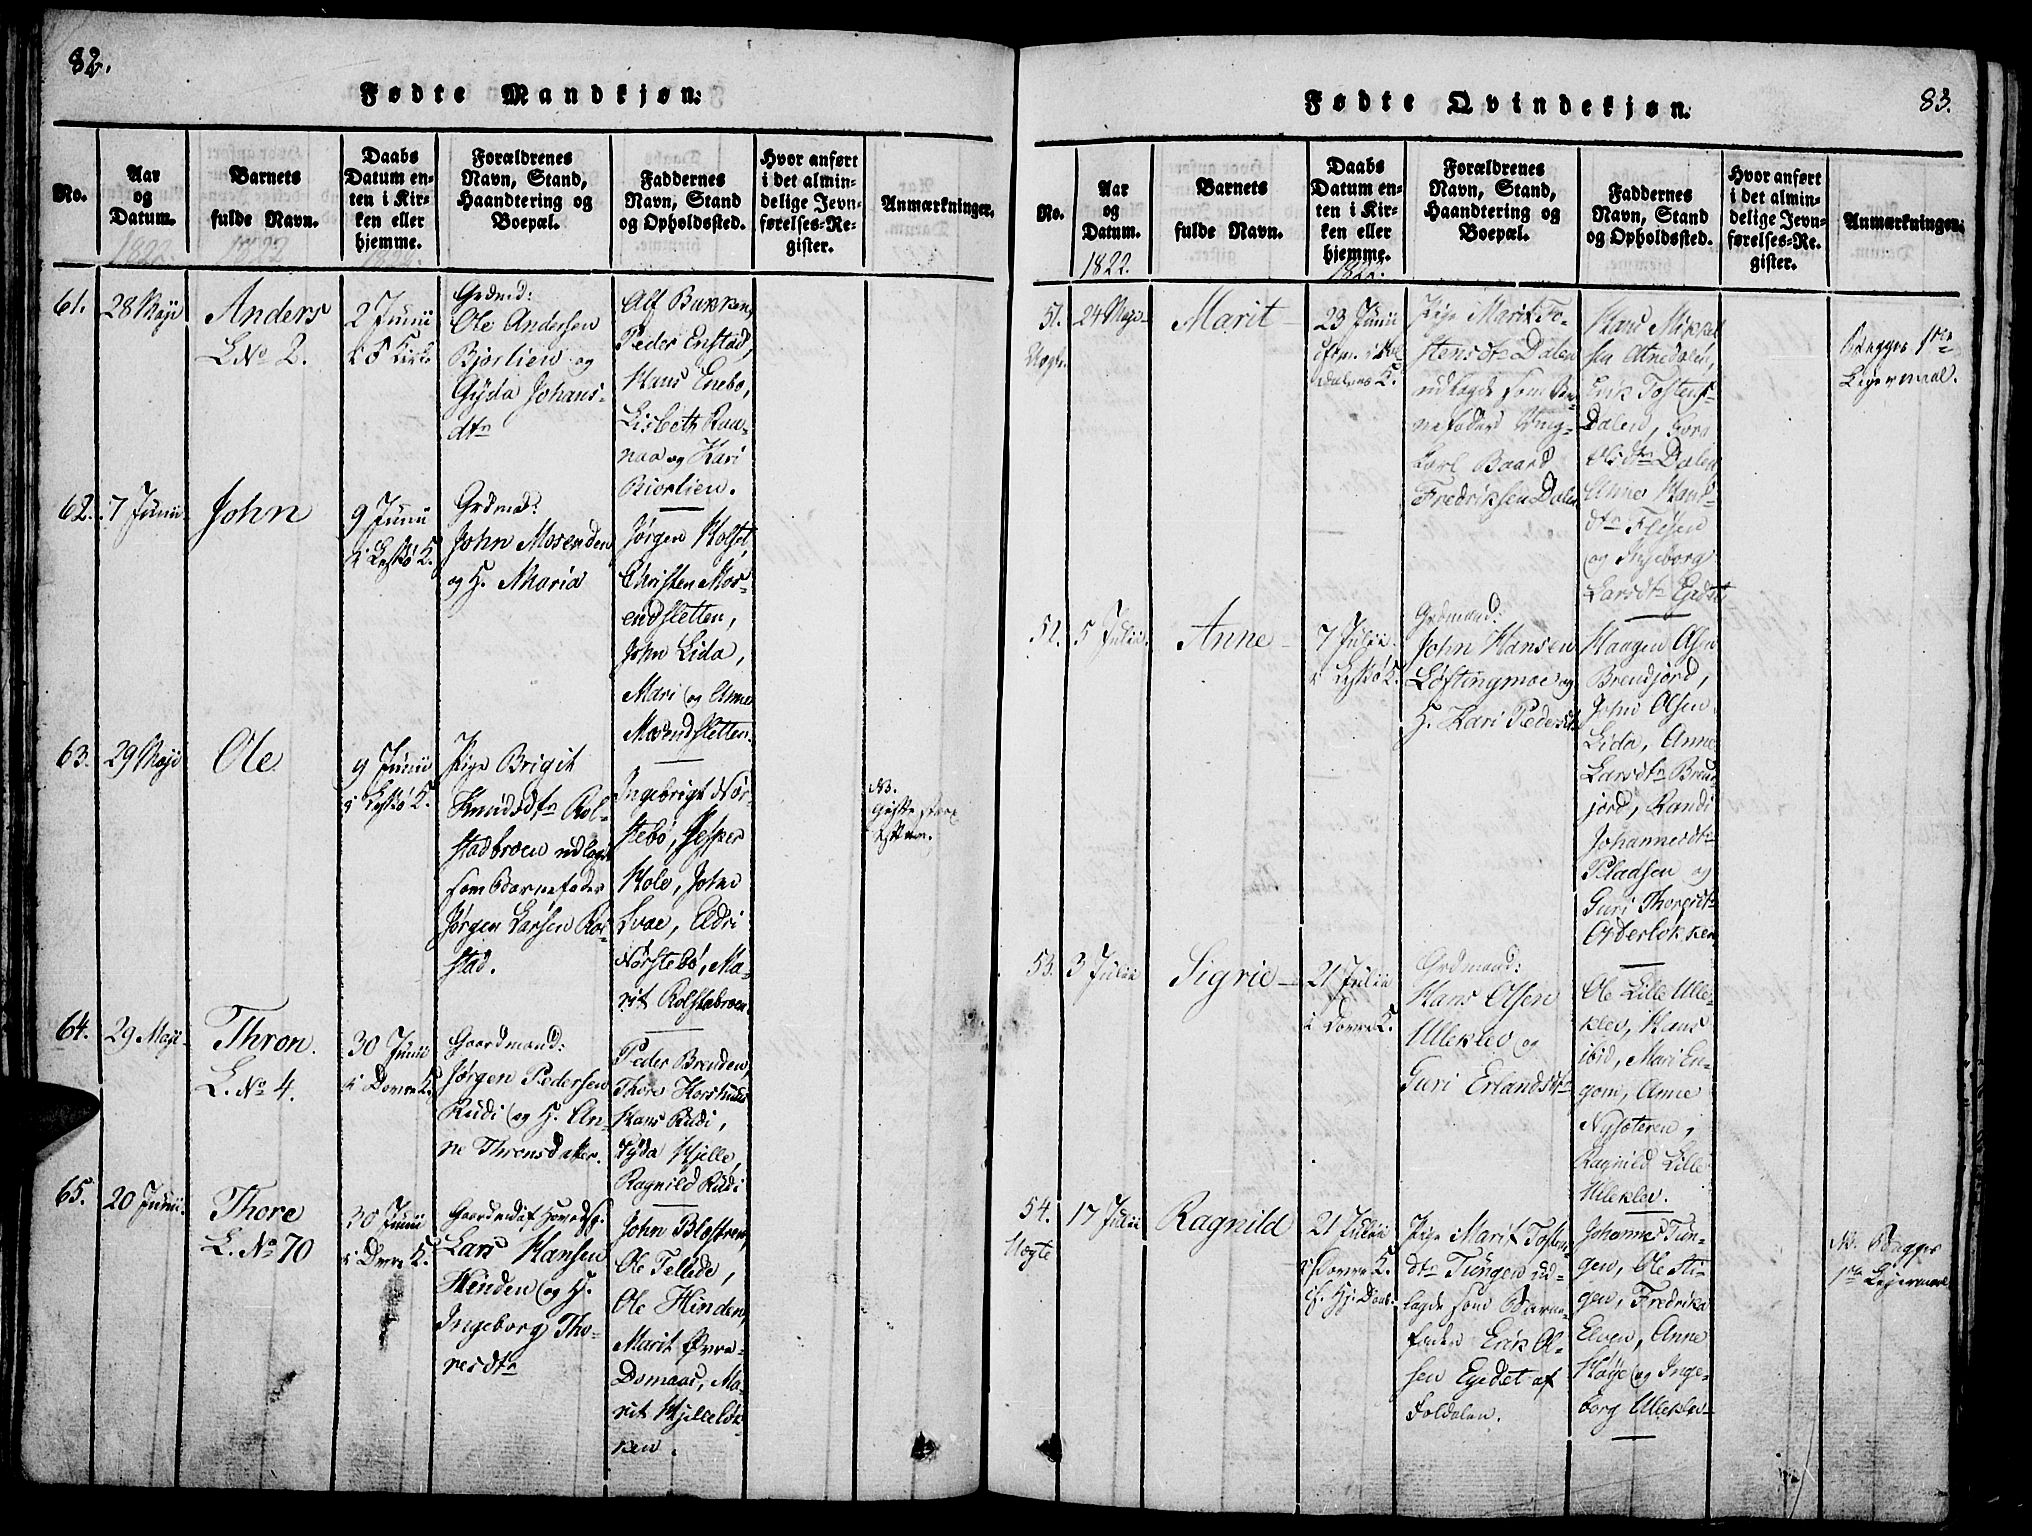 82.
Fødte Mandkjøn.
No.
Aar
og
Datum.
1822.
Barnets
fulde Navn.
1822
Daabs
Datum en-
ten i Kir-
ken eller
hjemme.
1822.
Forældrenes
Navn, Stand,
Haandtering og
Boepæl.
Faddernes
Navn, Stand
og Opholdssted.
Hvor anført
i det almin-
delige Jevn-
førelses-Re-
gister.
Anmærkninger.
61.
28 Maji
Anders
L No 2.
2 Junii
Grdmd:
Ole Andersen
Bjorlien og
Gyda Johans-
dtr
Alf Bakken,
Peder Enstad,
Hans Enebo,
Lisbeth Raa-
naa og Kari
Biorlien.
62.
7 Junii
John
9 Junii
i Leskø K.
Grdmd:
John Mosenden
og H. Maria
Jørgen Holset,
Christen Mos-
endsletten,
John Lida,
Mari og Anne
Mosendsletten.
63.
29 Maji
Ole
9 Junii
i Leskø K.
Pige Brigit
Knudsdtr Rol-
stadbroen udlagt
som Barnefader
Jørgen Larsen Rol-
stad.
Ingebrigt Nør-
stebø, Jesper
Hole, John
Svae, Eldri
Nørstebø, Ma-
rit Rolstabroen
NB.
64.
29 Maji
Thron.
L. No 4.
30 Junii
i Dovre K.
Gaardmand:
Jørgen Pedersen
Rudi og H. An-
ne Thronsdatter.
Peder Brenden,
Thore
Hans Rudi,
Gyda Kjelle,
Ragnild Rudi
65.
20 Junii.
Thore
L. No 70
30 Junii
i Dovre K.
Lars Hansen
Hinden og H.
Ingeborg Tho-
resdtr
John Bløstren,
Ole Tellede,
Ole Hinden,
Marit Øvre-
Domaas, Ma-
rit Kjelleløk-
ken.
83.
Fødte Qvindekjøn.
No.
Aar
og
Datum.
1822.
Barnets
fulde Navn.
Daabs
Datum en-
ten i Kir-
ken eller
hjemme.
1822.
Forældrenes
Navn, Stand,
Haandtering og
Boepæl.
Faddernes
Navn, Stand
og Opholdssted.
Hvor anført
i det almin-
delige Jevn-
førelses-Re-
gister.
Anmærkninger.
51.
24 Maji
Marit
23 Junii
Pige Marit To-
stensdtr Dalen
udlagde som Bar-
nefader Ung-
karl Baard
Fredriksen Dalen
Hans Mikkel-
sen Atnedalen,
Erik Tostens.
Dalen, Tora
Olsdtr Dalen
Anne Hans-
dtr
og Ingeborg
Larsdtr Egdet
Begges 1ste
Leiermaal.
52.
5 Julii.
Anne
7 Julii
i Leskø K.
Grdmand:
John Hansen
Løftingmoe og
H. Kari Pedersdtr
Haagen Olsen
Brendjord,
John Olsen
Lida, Anne
Larsdtr Brend-
jord, Randi
Johannesdtr
Pladsen og
Guri Thoresdtr
Oderløkken
53.
3 Julii
Sigrie
21 Julii
i Dovre K.
Grdmand:
Hans Olsen
Ulleklev og
Guri Erlandsdtr
Ole Lille Ulle-
klev, Hans
ibid, Mari En-
gom, Anne
Nysæteren,
Ragnild Lille
Ulleklev.
54.
Uægte
17 Julii
Ragnild
21 Julii
i Dovre K.
Pige Marit Tosten-
dtr Tungen ud-
lagde som Barne-
fader Erik Ol-
sen Egedet af
Foldalen.
Johannes Tun-
gen, Ole Sti-
gen, Fredrika
Elven, Anne
Høye og Inge-
borg Ulleklev
NB. Begges
1ste Leiermaal